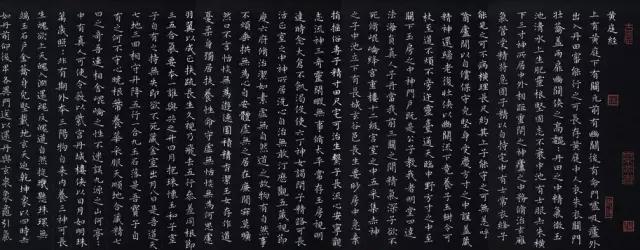 黃庭經
上有黃庭下有關元前有幽闕後有命門噓吸廬外
出入丹田審能行之可長存黃庭中人衣朱衣關門
壯籥蓋兩扉幽闕俠之高巍巍丹田之中精氣微玉
池清水上生肥靈根堅志不衰中池有士服赤朱橫
下三寸神所居中外相距重閉之神廬之中務脩治玄廱
氣管受精符急固子精以自持宅中有士常衣絳子
能見之可不病橫理長尺約其上子能守之可無恙呼
噏廬間以自償保守完堅身受慶方寸之中謹蓋藏
精神還歸老復壯俠以幽闕流下竟養子玉樹令可
杖至道不煩不旁迕靈臺通天臨中野方寸之中至
關下玉房之中神門戶既是公子教我者明堂四達
法海員真人子丹當我前三關之間精氣深子欲不
死脩崐崘絳宮重樓十二級宮室之中五采集赤神
之子中池立下有長城玄谷邑長生要眇房中急棄
捐搖俗專子精寸田尺宅可治生繫子長流心安寧觀
志流神三奇靈閑暇無事脩太平常存玉房視明
達時念大倉不飢渴役使六丁神女謁閉子精路可長
活正室之中神所居洗心自治無敢汙歷觀五藏視節
度六府脩治潔如素虛無自然道之故物有自然事
不煩垂拱無為心自安體虛無之居在廉間寂莫曠
然口不言恬惔無為遊德園積精香潔玉女存作道
憂柔身獨居扶養性命守虛無恬惔無為何思慮
羽翼以成正扶疏長生久視乃飛去五行參差同根節
三五合氣要本一誰與共之升日月抱珠懷玉和
子室子自有之持無失即欲不死藏金室出月入日是吾道天
七地三回相守升降五行一合九玉石落落是吾寶子自
有之何不守心曉根蒂養華采服天順地合藏精七
日之奇吾連相合崐崘之性不迷誤九源之山何亭亭
中有真人可使令蔽以紫宮丹城樓俠以日月如明珠
萬歲照照非有期外本三陽物自來內養三神可長
生魂欲上天魄入淵還魂反魄道自然璇璣懸珠環無
端玉石戶金籥身完堅載地玄天迴乾坤象以四時赤
如丹前仰後卑各異門送以還丹與玄泉象龜引氣